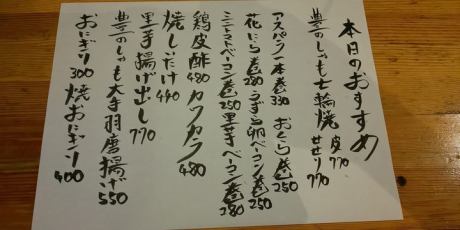 本日のおすすめ
豊のしゃも七輪焼 皮770 せせり770
アスパラ一本巻330 おくら巻250
花にら巻280 うずら卵ベーコン巻250
ミニトマトベーコン巻250 里芋ベーコン巻280
鶏皮酢480 カワカラ480
焼しいたけ440
里芋揚げ出し770
豊のしゃも大手羽唐揚げ550
おにぎり300 焼おにぎり400